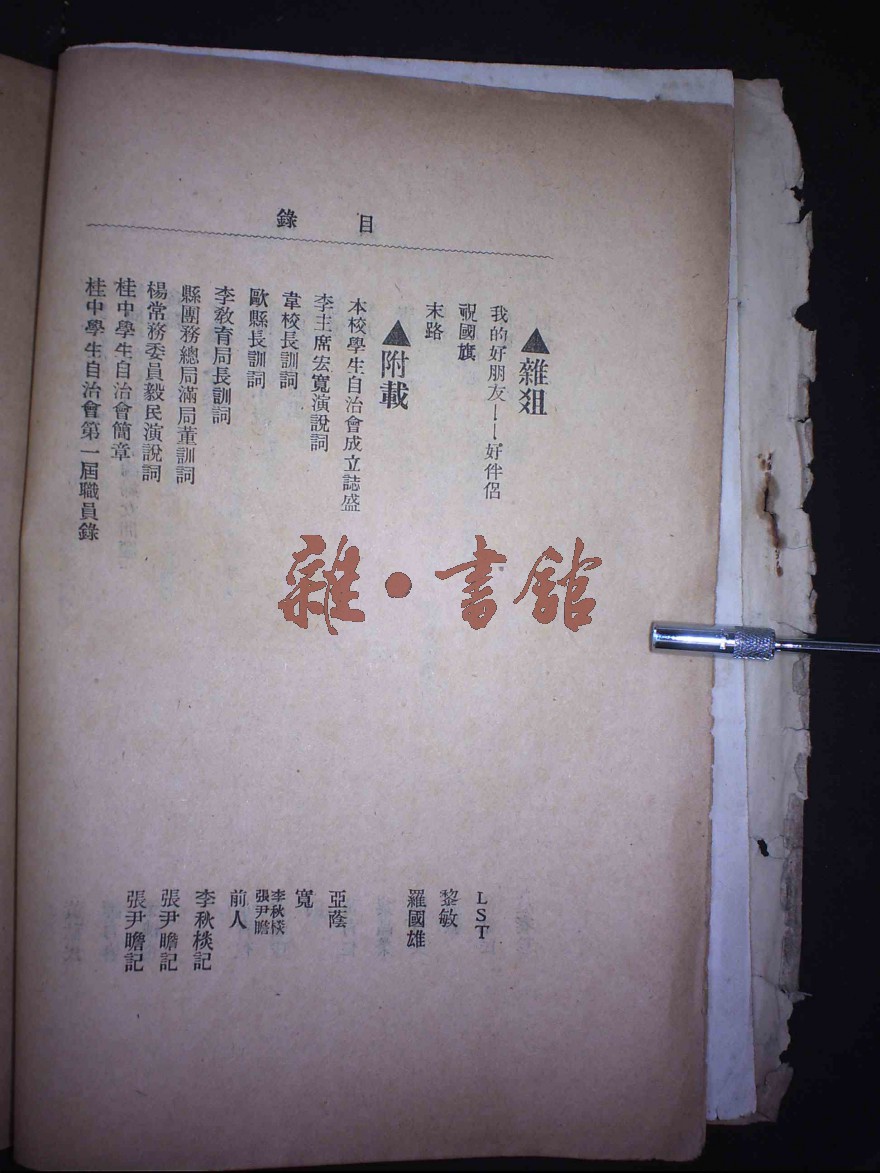 目錄
▲雜俎
我的好朋友——好伴侶 LST
祝國旗 黎敏
末路 羅國雄
▲附載
本校學生自治會成立誌盛 亞蔭
李主席宏寬演說詞 寬
韋校長訓詞 李秋棪 張尹瞻
歐縣長訓詞 前人
李教育局長訓詞 李秋棪記
縣團務總局滿局董訓詞 張尹瞻記
楊常務委員毅民演說詞 張尹瞻記
桂中學生自治會簡章
桂中學生自治會第一屆職員錄
雜·書館